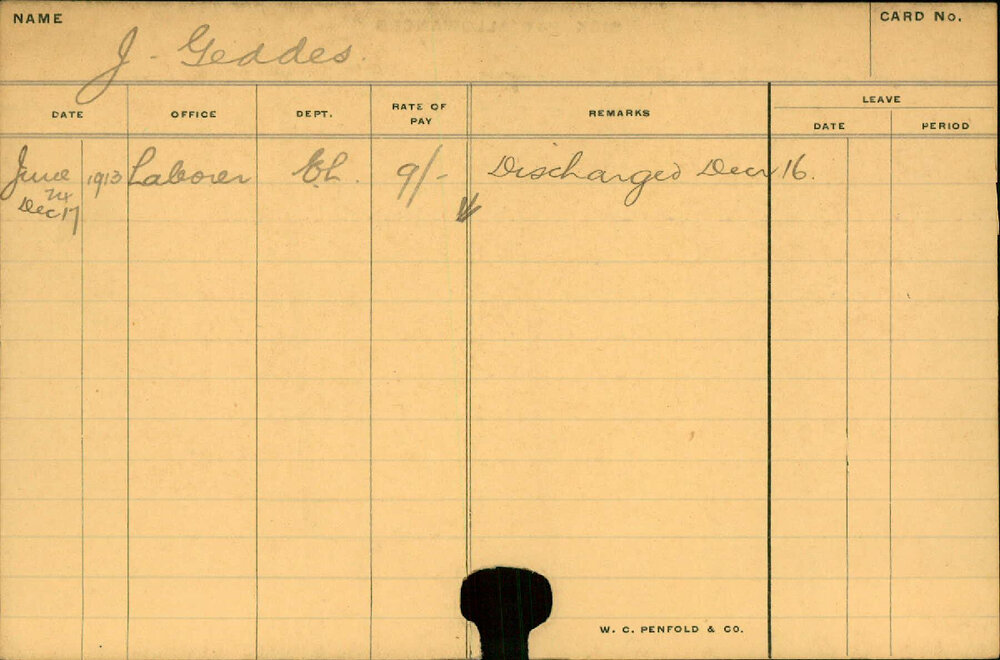 NAME
CARD No.
J. Geddes.
DATE OFFICE DEPT. RATE OF PAY REMARKS LEAVE
DATE PERIOD
June 1913 Laborer 9/- Discharged Decr 16.
24
Dec 17
W. C. PENFOLD & CO.